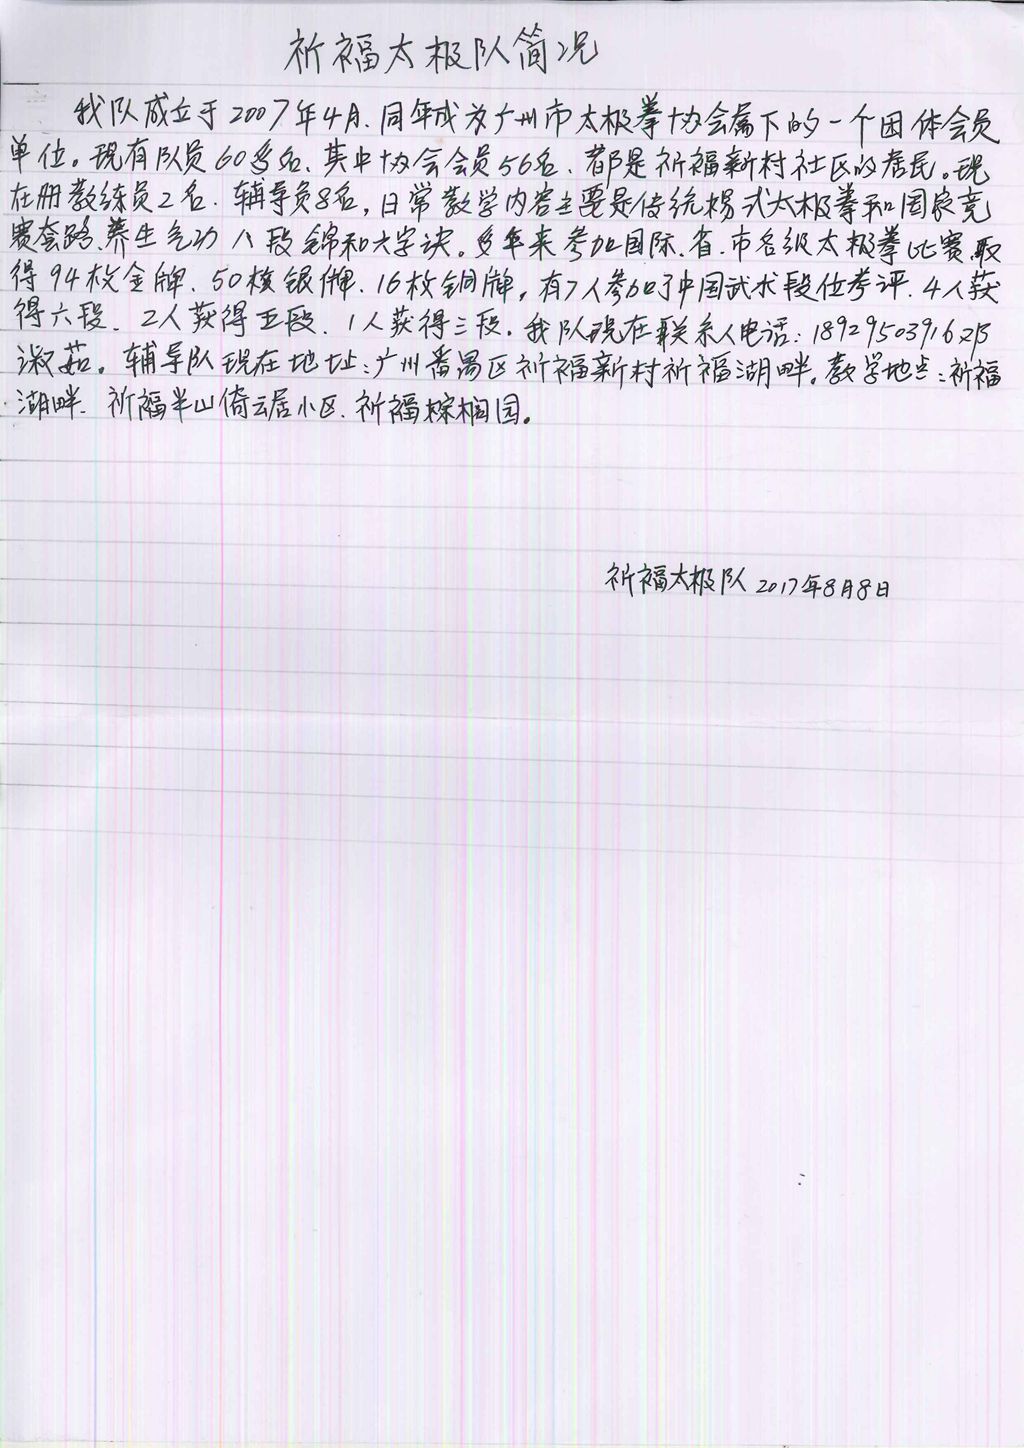 祈福太极队简况
我队成立于2007年4月、同年成为广州市太极拳协会属下的一个团体会员
单位。现有队员60多名、其中协会会员56名、都是祈福新村社区的居民。现
在册教练员2名、辅导员8名，日常教学内容主要是传统杨式太极拳和国家竞
赛套路、养生气功八段锦和六字诀。多年来参加国际、省、市各级太极拳比赛、取
得94枚金牌、50枚银牌、16枚铜牌，有7人参加了中国武术段位考评、4人获
得六段、2人获得五段、1人获得三段。我队现在联系人电话：18929503916邓
淑茹。辅导队现在地址：广州番禺区祈福新村祈福湖畔。教学地点：祈福
湖畔、祈福半山倚云居小区、祈福棕榈园。
祈福太极队 2017年8月8日